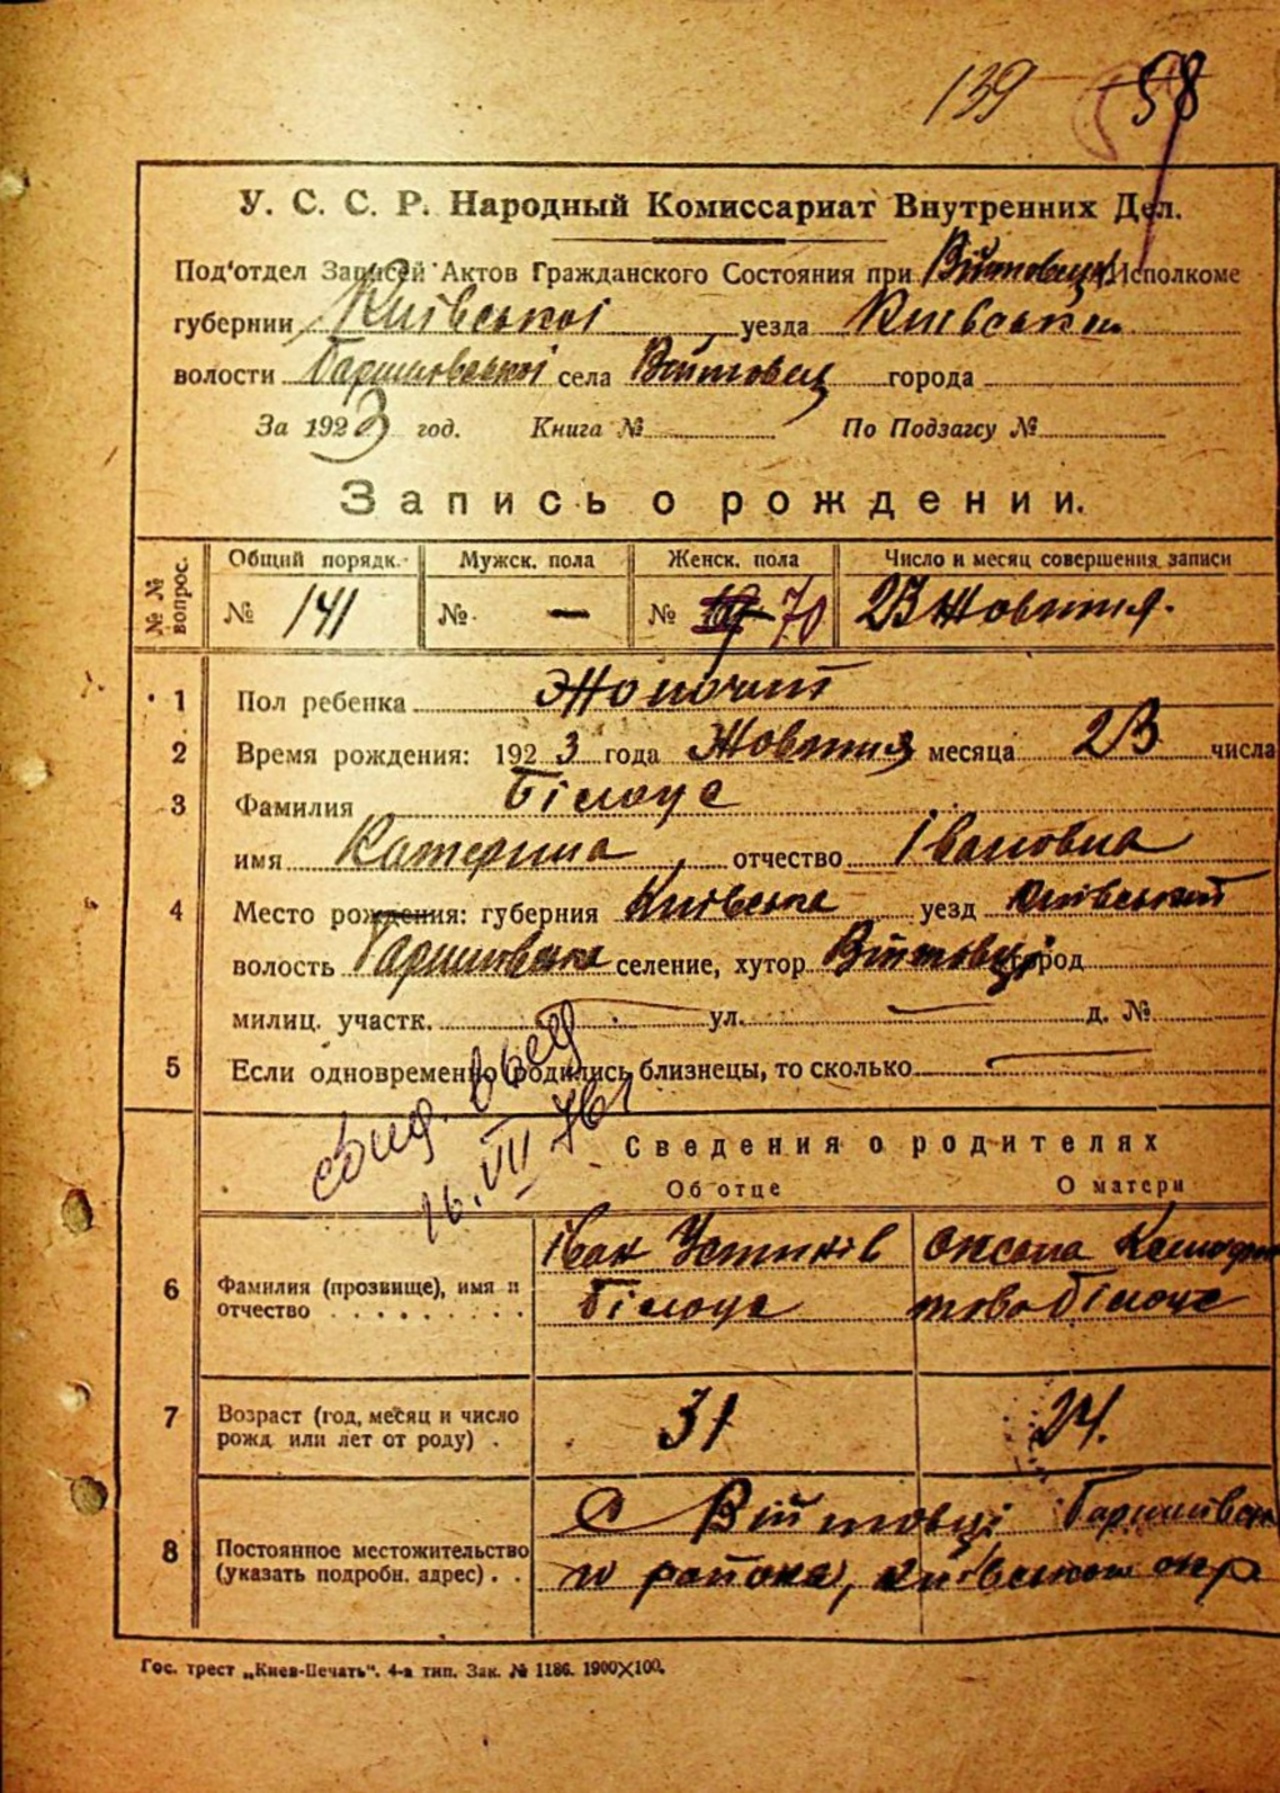 139 58
У. С. С. Р. Народный Комиссариат Внутренних Дел.
Под'отдел Записей Актов Гражданского Состояния при Исполкоме
губернии Київської уезда Київськ
волости села Війтовец города
За 1923 год. Книга № По Подзагсу №
Запись о рождении.
№ № вопрос. Общий порядк. Мужск. пола Женск. пола Число и месяц совершения записи
№ 141 № — № 70 23 Жовтня.
1 Пол ребенка Жіночий
2 Время рождения: 1923 года Жовтня месяца 23 числа
3 Фамилия Білоус
имя Катерина отчество Івановна
4 Место рождения: губерния Київська уезд Київський
волость селение, хутор Війтовці город
милиц. участк. ул. д. №
5 Если одновременно родились близнецы, то сколько
16. VII 76г
Сведения о родителях
Об отце О матери
Іван Оксана
6 Фамилия (прозвище), имя и
отчество . . . . . . . . . Білоус Білоус
7 Возраст (год, месяц и число
рожд. или лет от роду) . 31 24.
С Війтовці
8 Постоянное местожительство
(указать подробн. адрес) . . района, окр
Гос. трест „Киев-Печать“. 4-я тип. Зак. № 1186. 1900×100.